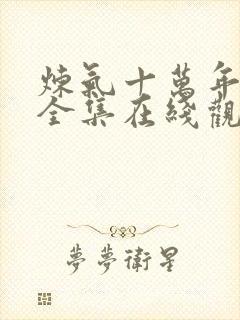 煉氣十萬年
全集在綫觀
夢夢衛星